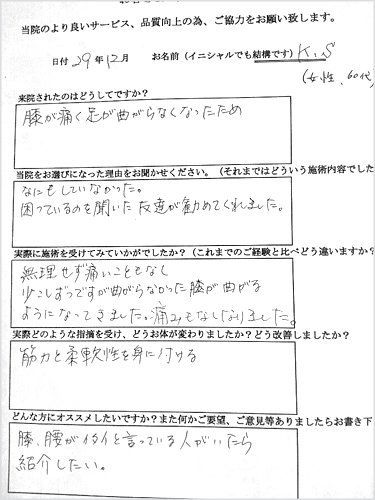 当院のより良いサービス、品質向上の為、ご協力をお願い致します。
日付 29年12月 お名前(イニシャルでも結構です) K.S
(女性、60代)
来院されたのはどうしてですか?
膝が痛く足が曲がらなくなったため
当院をお選びになった理由をお聞かせください。(それまではどういう施術内容でした
なにもしていなかった。
困っているのを聞いた友達が勧めてくれました。
実際に施術を受けてみていかがでしたか?(これまでのご経験と比べどう違いますか?
無理せず痛いこともなく
少しずつですが曲がらなかった膝が曲がる
ようになってきました。痛みもなくなりました。
実際どのような指摘を受け、どうお体が変わりましたか?どう改善しましたか?
筋力と柔軟性を身に付ける
どんな方にオススメしたいですか?また何かご要望、ご意見等ありましたらお書き下
膝、腰がイタイと言っている人がいたら
紹介したい。